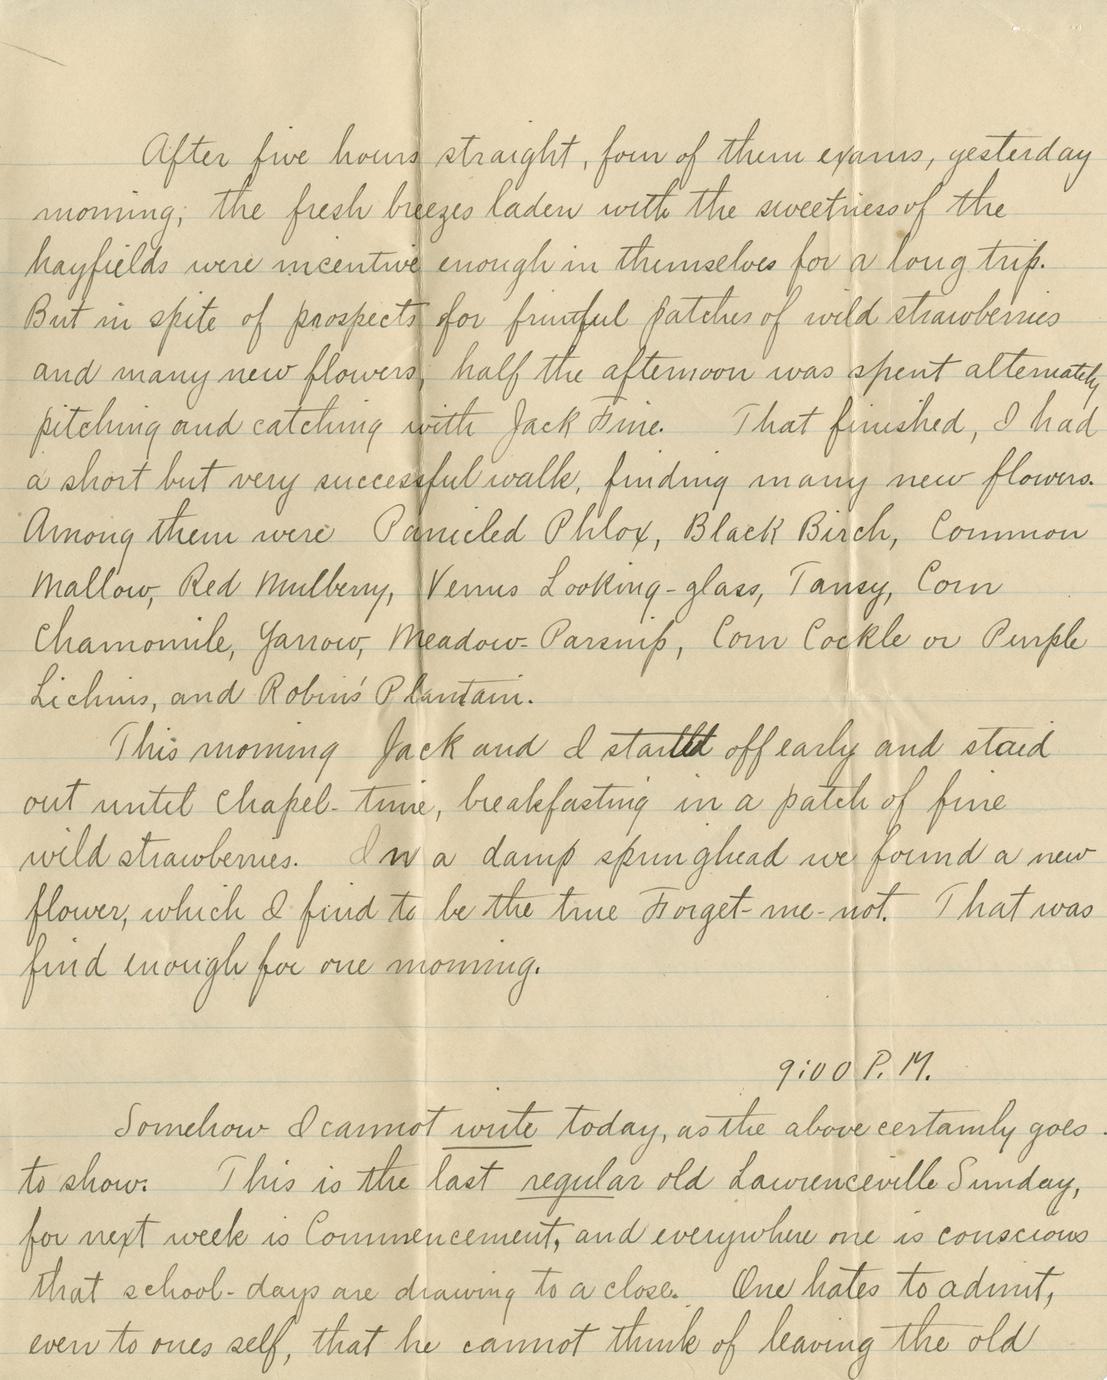 After five hours straight, four of them exams, yesterday
morning, the fresh breezes laden with the sweetness of the
hayfields were incentive enough in themselves for a long trip.
But in spite of prospects for fruitful patches of wild strawberries
and many new flowers, half the afternoon was spent alternately
pitching and catching with Jack Fine. That finished, I had
a short but very successful walk, finding many new flowers.
Among them were Panicled Phlox, Black Birch, Common
Mallow, Red Mulberry, Venus Looking-glass, Tansy, Corn
Chamomile, Yarrow, Meadow-Parsnip, Corn Cockle or Purple
Lichnis, and Robins' Plantain.
This morning Jack and I started off early and staid
out until chapel-time, breakfasting in a patch of fine
wild strawberries. In a damp springhead we found a new
flower, which I find to be the true Forget-me-not. That was
find enough for one morning.
9:00 P.M.
Somehow I cannot write today, as the above certainly goes
to show. This is the last regular old Lawrenceville Sunday,
for next week is Commencement, and everywhere one is conscious
that school-days are drawing to a close. One hates to admit,
even to ones self, that he cannot think of leaving the old